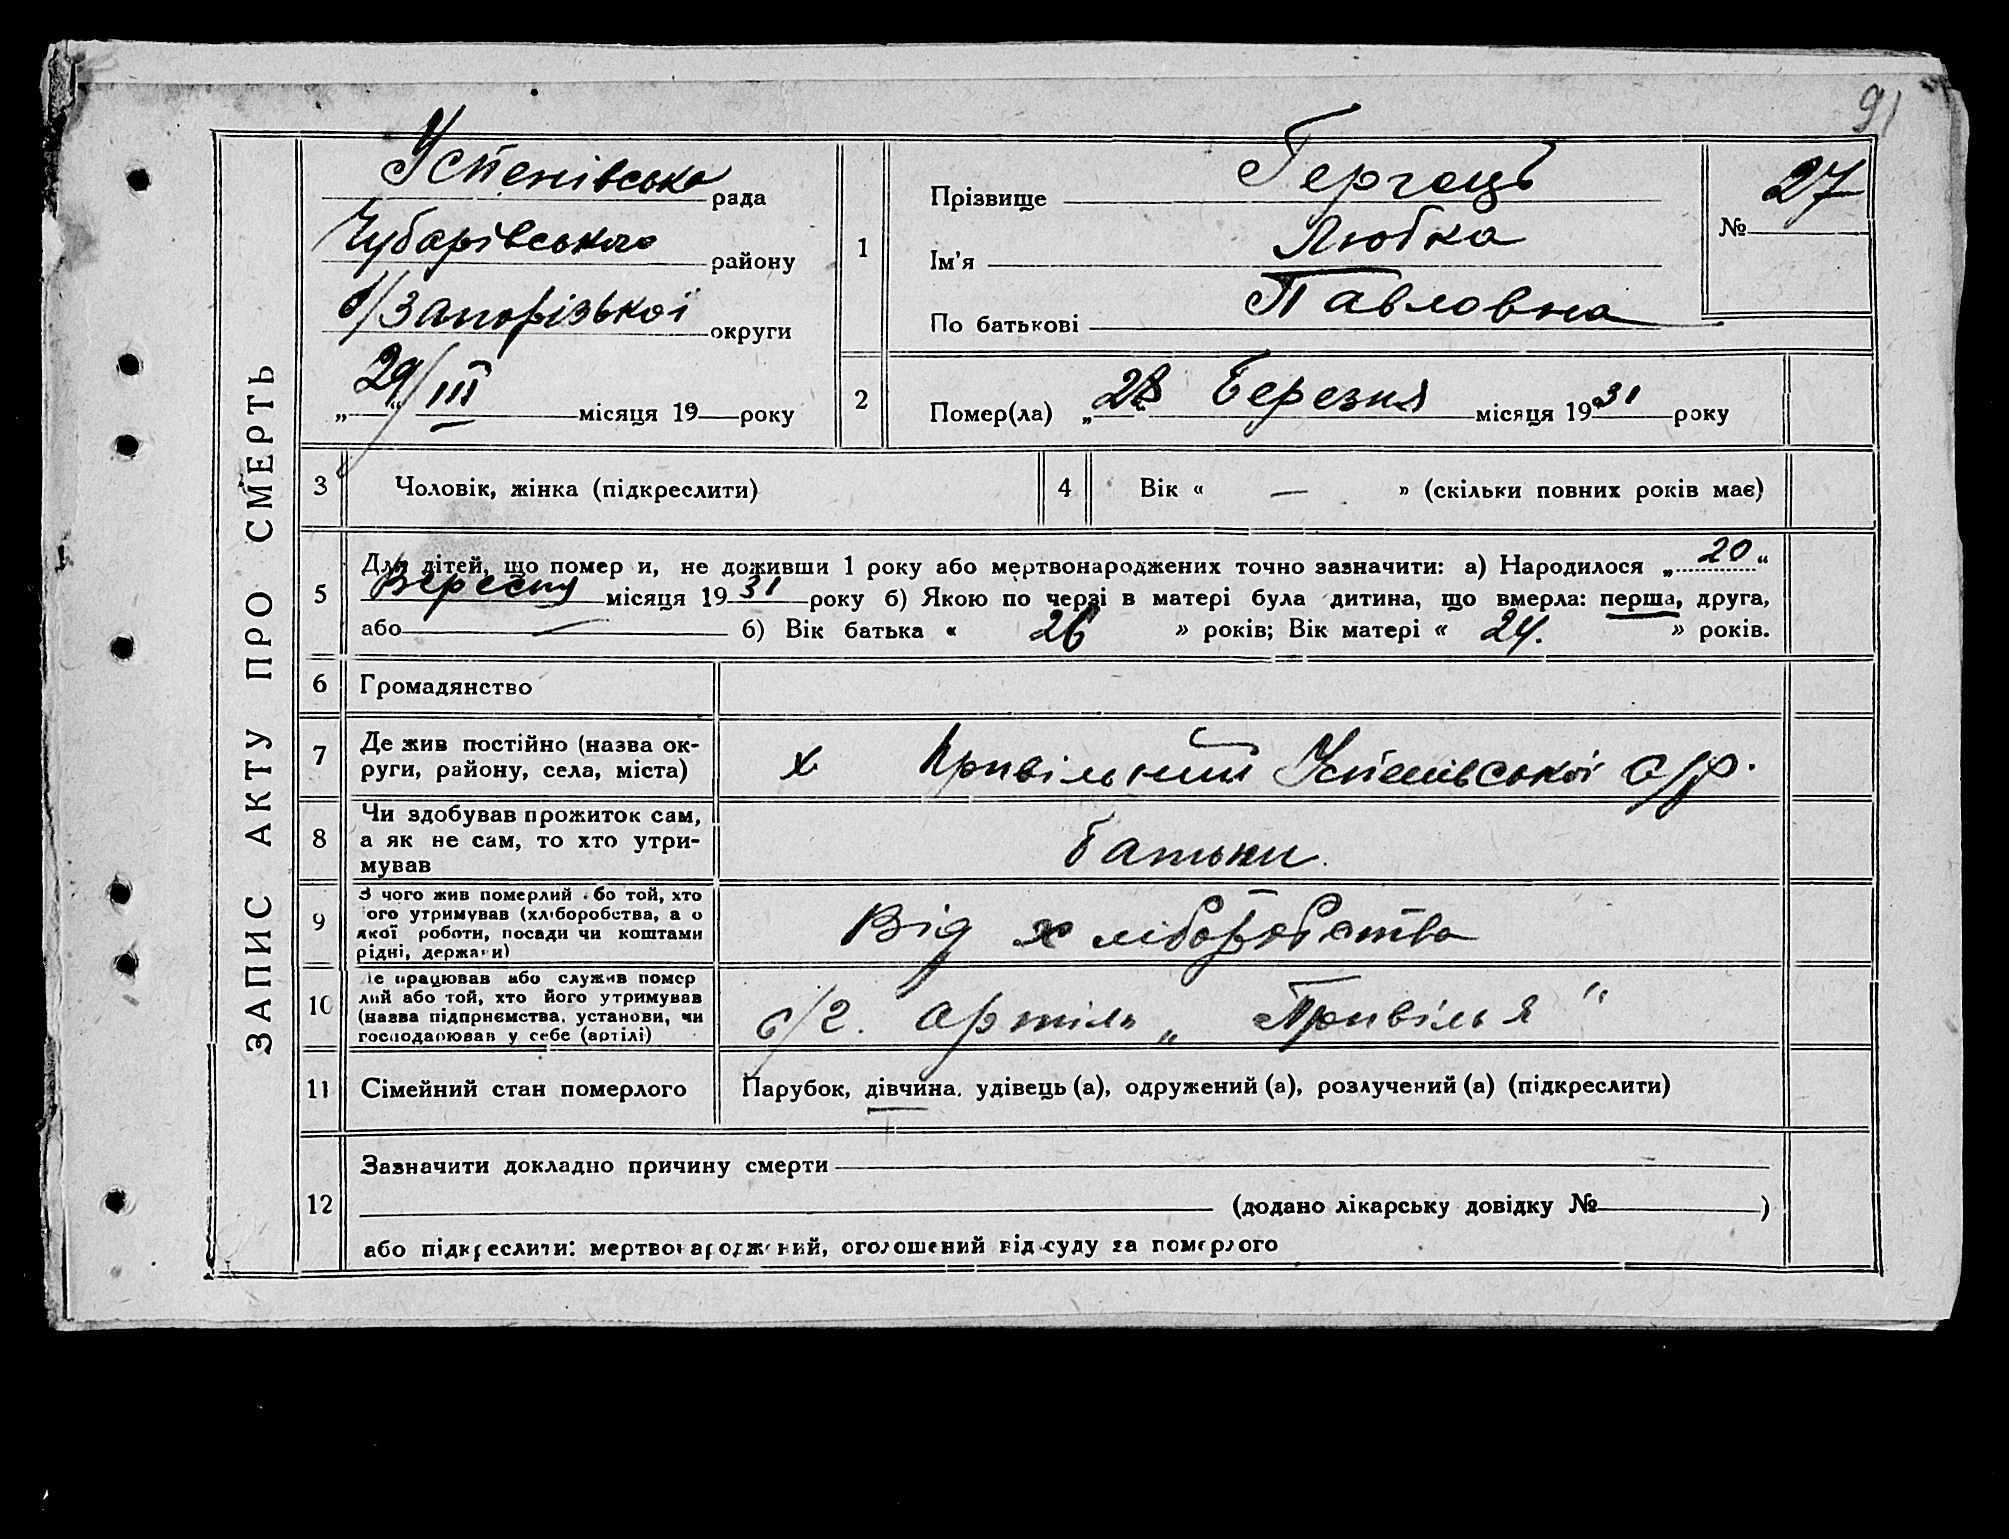 91
ЗАПИС АКТУ ПРО СМЕРТЬ
Успенівська рада
Чубарівського району
б/Запорізької округи
„29/“ III місяця 19 року
1
Прізвище Гергець
Ім'я Любка
По батькові Павловна
№ 27
2
Помер(ла) „28“ Березня місяця 1931 року
3 Чоловік, жінка (підкреслити)
4 Вік « — » (скільки повних років має)
5
Для дітей, що помер и, не доживши 1 року або мертвонароджених точно зазначити: а) Народилося „20“
Вересня місяця 1931 року б) Якою по черзі в матері була дитина, що вмерла: перша, друга,
або — б) Вік батька « 26 » років; Вік матері « 24. » років.
6 Громадянство
7 Де жив постійно (назва ок-
руги, району, села, міста)
х Привільний Успенівської с/р.
8 Чи здобував прожиток сам,
а як не сам, то хто утри-
мував
батьки.
9 З чого жив померлий бо той, хто
ого утримував (хліборобства, а о
якої роботи, посади чи коштами
рідні, держави)
Від хліборобства
10 е працював або служив помер
лий або той, хто його утримував
(назва підприємства, установи, чи
господарював у себе (артілі)
с/г. артіль „Привілья“
11 Сімейний стан померлого
Парубок, дівчина, удівець (а), одружений (а), розлучений (а) (підкреслити)
12
Зазначити докладно причину смерти
(додано лікарську довідку № )
або підкреслити: мертвонароджений, оголошений від суду за померлого